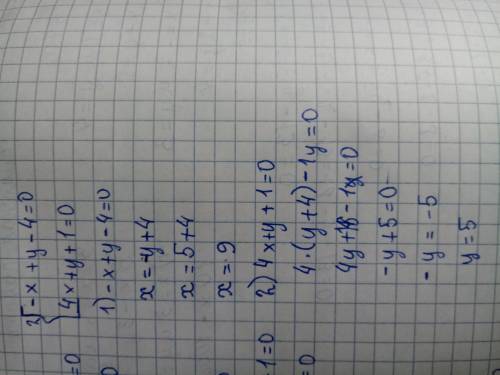 2) { -x+y-4=0
4x+y+1=0
1) -x+y-4=0
x=-y+4
x=5+4
x=9
2) 4x+y+1=0
4·(y+4)-1y=0
4y+16-1y=0
-y+5=0
-y=-5
y=5